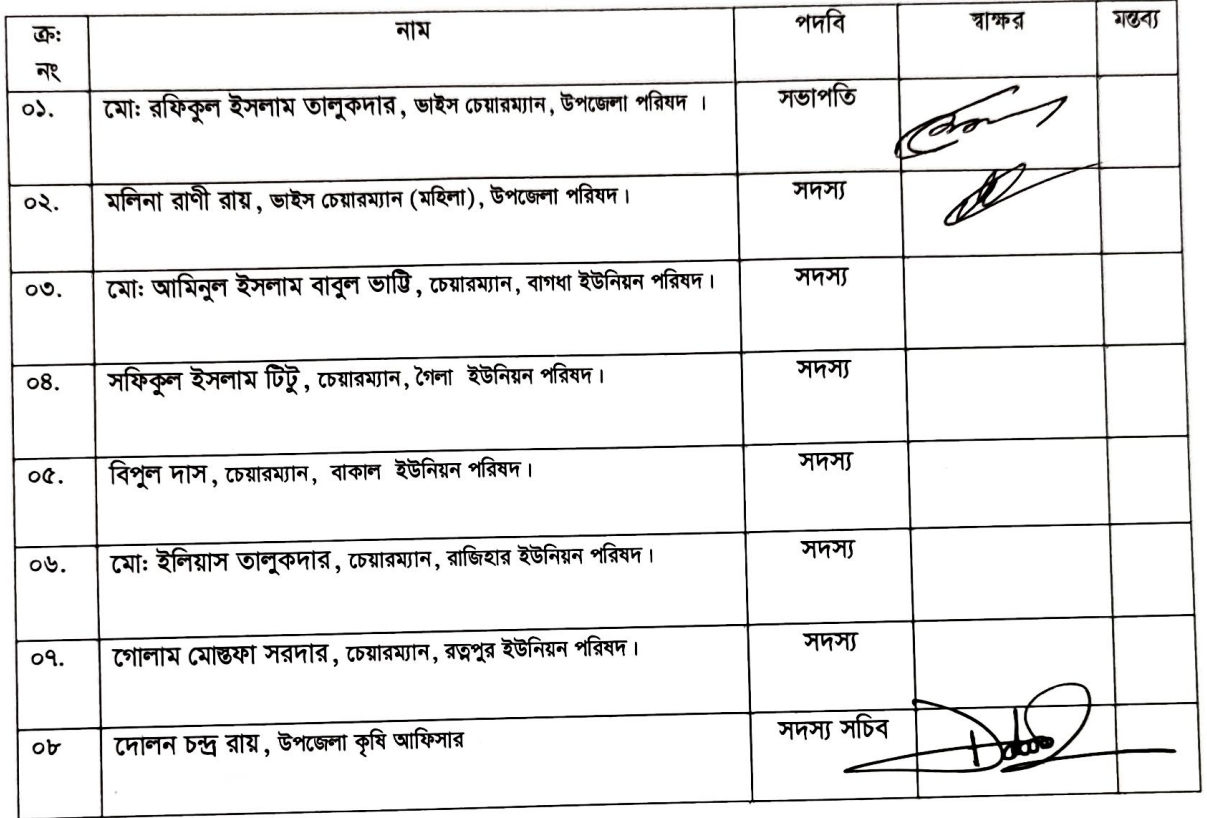 ক্র: নাম পদবি স্বাক্ষর মন্তব্য
নং
০১. মো: রফিকুল ইসলাম তালুকদার, ভাইস চেয়ারম্যান, উপজেলা পরিষদ । সভাপতি
০২. মলিনা রাণী রায়, ভাইস চেয়ারম্যান (মহিলা), উপজেলা পরিষদ। সদস্য
০৩. মো: আমিনুল ইসলাম বাবুল ভাট্টি, চেয়ারম্যান, বাগধা ইউনিয়ন পরিষদ। সদস্য
০৪. সফিকুল ইসলাম টিটু, চেয়ারম্যান, গৈলা ইউনিয়ন পরিষদ। সদস্য
০৫. বিপুল দাস, চেয়ারম্যান, বাকাল ইউনিয়ন পরিষদ। সদস্য
০৬. মো: ইলিয়াস তালুকদার, চেয়ারম্যান, রাজিহার ইউনিয়ন পরিষদ। সদস্য
০৭. গোলাম মোস্তফা সরদার, চেয়ারম্যান, রত্নপুর ইউনিয়ন পরিষদ। সদস্য
০৮ দোলন চন্দ্র রায়, উপজেলা কৃষি আফিসার সদস্য সচিব